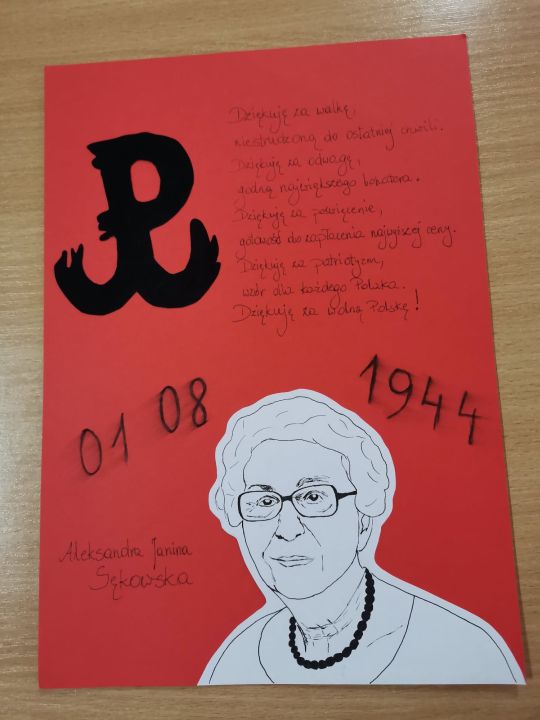 Dziękuję za walkę,
niestrudzoną do ostatniej chwili.
Dziękuję za odwagę,
godną największego bohatera.
Dziękuję za poświęcenie,
gotowość do zapłacenia najwyższej ceny.
Dziękuję za patriotyzm,
wzór dla każdego Polaka.
Dziękuję za wolną Polskę!
01 08 1944
Aleksandra Janina
Sękowska